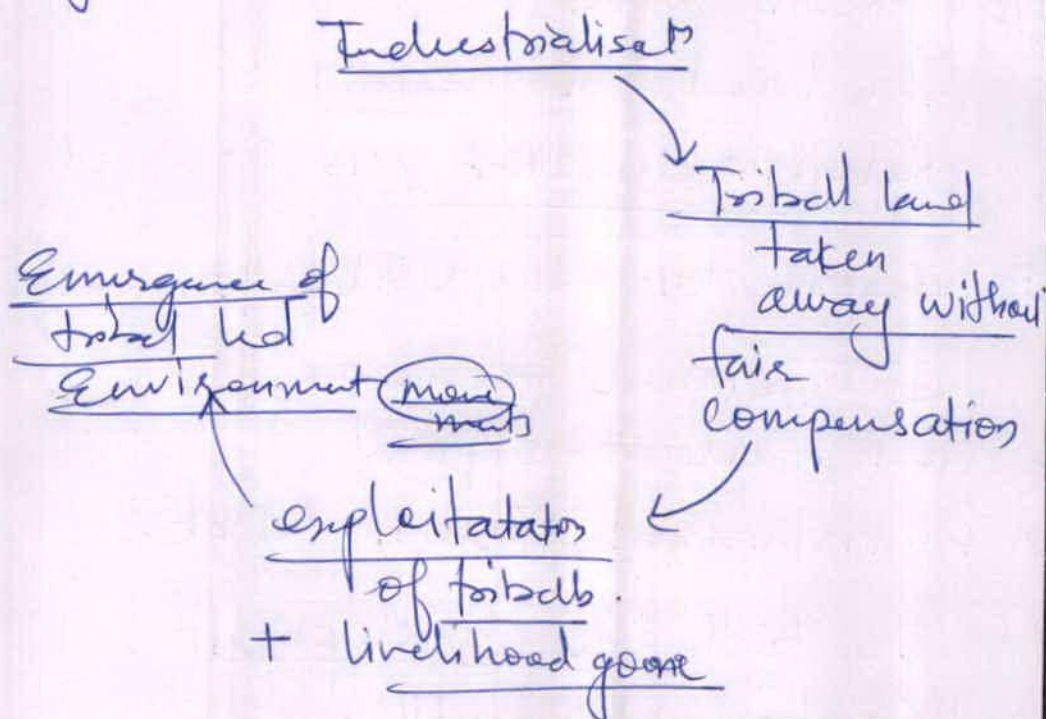 Industrialisatn
Tribal land
taken
away without
fair
compensation
exploitatation
of tribals.
+ livelihood gone
Emergence of
tribal led
Environment move
ments